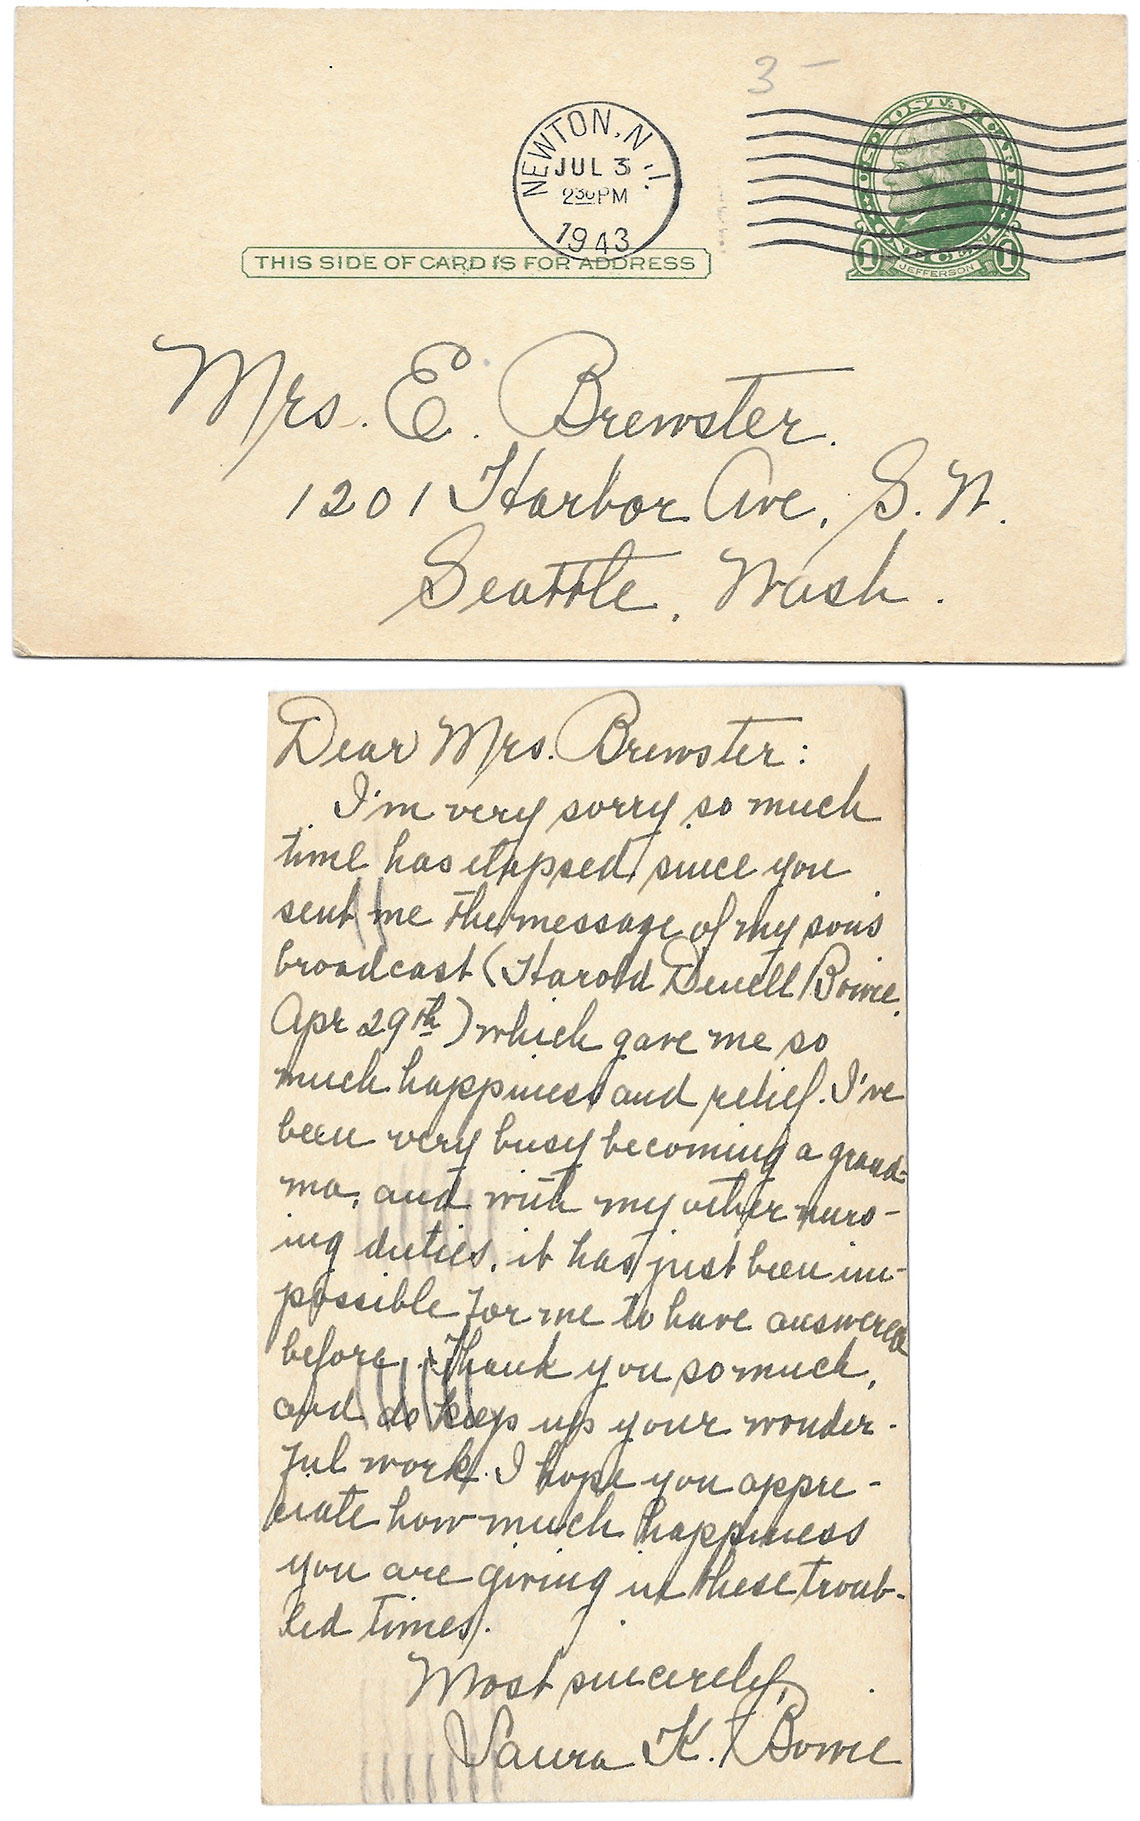 3 –
U.S. POSTAGE
NEWTON, N.J.
JUL 3
2 30 PM
1943
1 CENT 1
JEFFERSON
THIS SIDE OF CARD IS FOR ADDRESS
Mrs. E. Brewster.
1201 Harbor Ave. S. W.
Seattle, Wash.
Dear Mrs. Brewster:
I'm very sorry so much
time has elapsed since you
sent me the message of my son's
broadcast (Harold Bowie,
Apr 29th) which gave me so
much happiness and relief. I've
been very busy becoming a grand-
ma, and with my other nurs-
ing duties, it has just been im-
possible for me to have answered
before. Thank you so much,
and do keep up your wonder-
ful work. I hope you appre-
ciate how much happiness
you are giving in these troub-
led times.
Most sincerely,
Laura K. Bowie